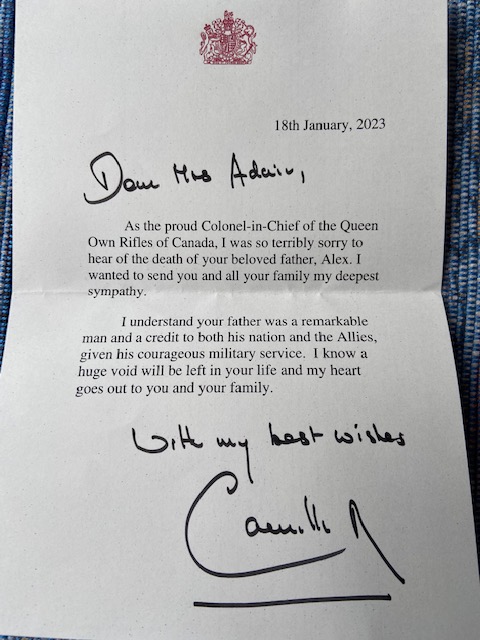 18th January, 2023
Dear Mrs Adair,
As the proud Colonel-in-Chief of the Queen
Own Rifles of Canada, I was so terribly sorry to
hear of the death of your beloved father, Alex. I
wanted to send you and all your family my deepest
sympathy.
I understand your father was a remarkable
man and a credit to both his nation and the Allies,
given his courageous military service. I know a
huge void will be left in your life and my heart
goes out to you and your family.
With my best wishes
Camilla R